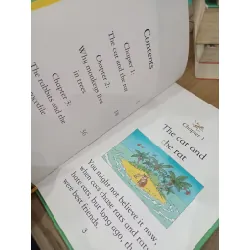 Contents
Chapter 1:
The cat and the rat
Chapter 2:
Why monkeys live
in trees
Chapter 3:
The rabbits and the
crocodile
Chapter 1
The cat and
the rat
You might not believe it now,
when cats chase rats and rats
hate cats, but long ago, th
were best friends.
3